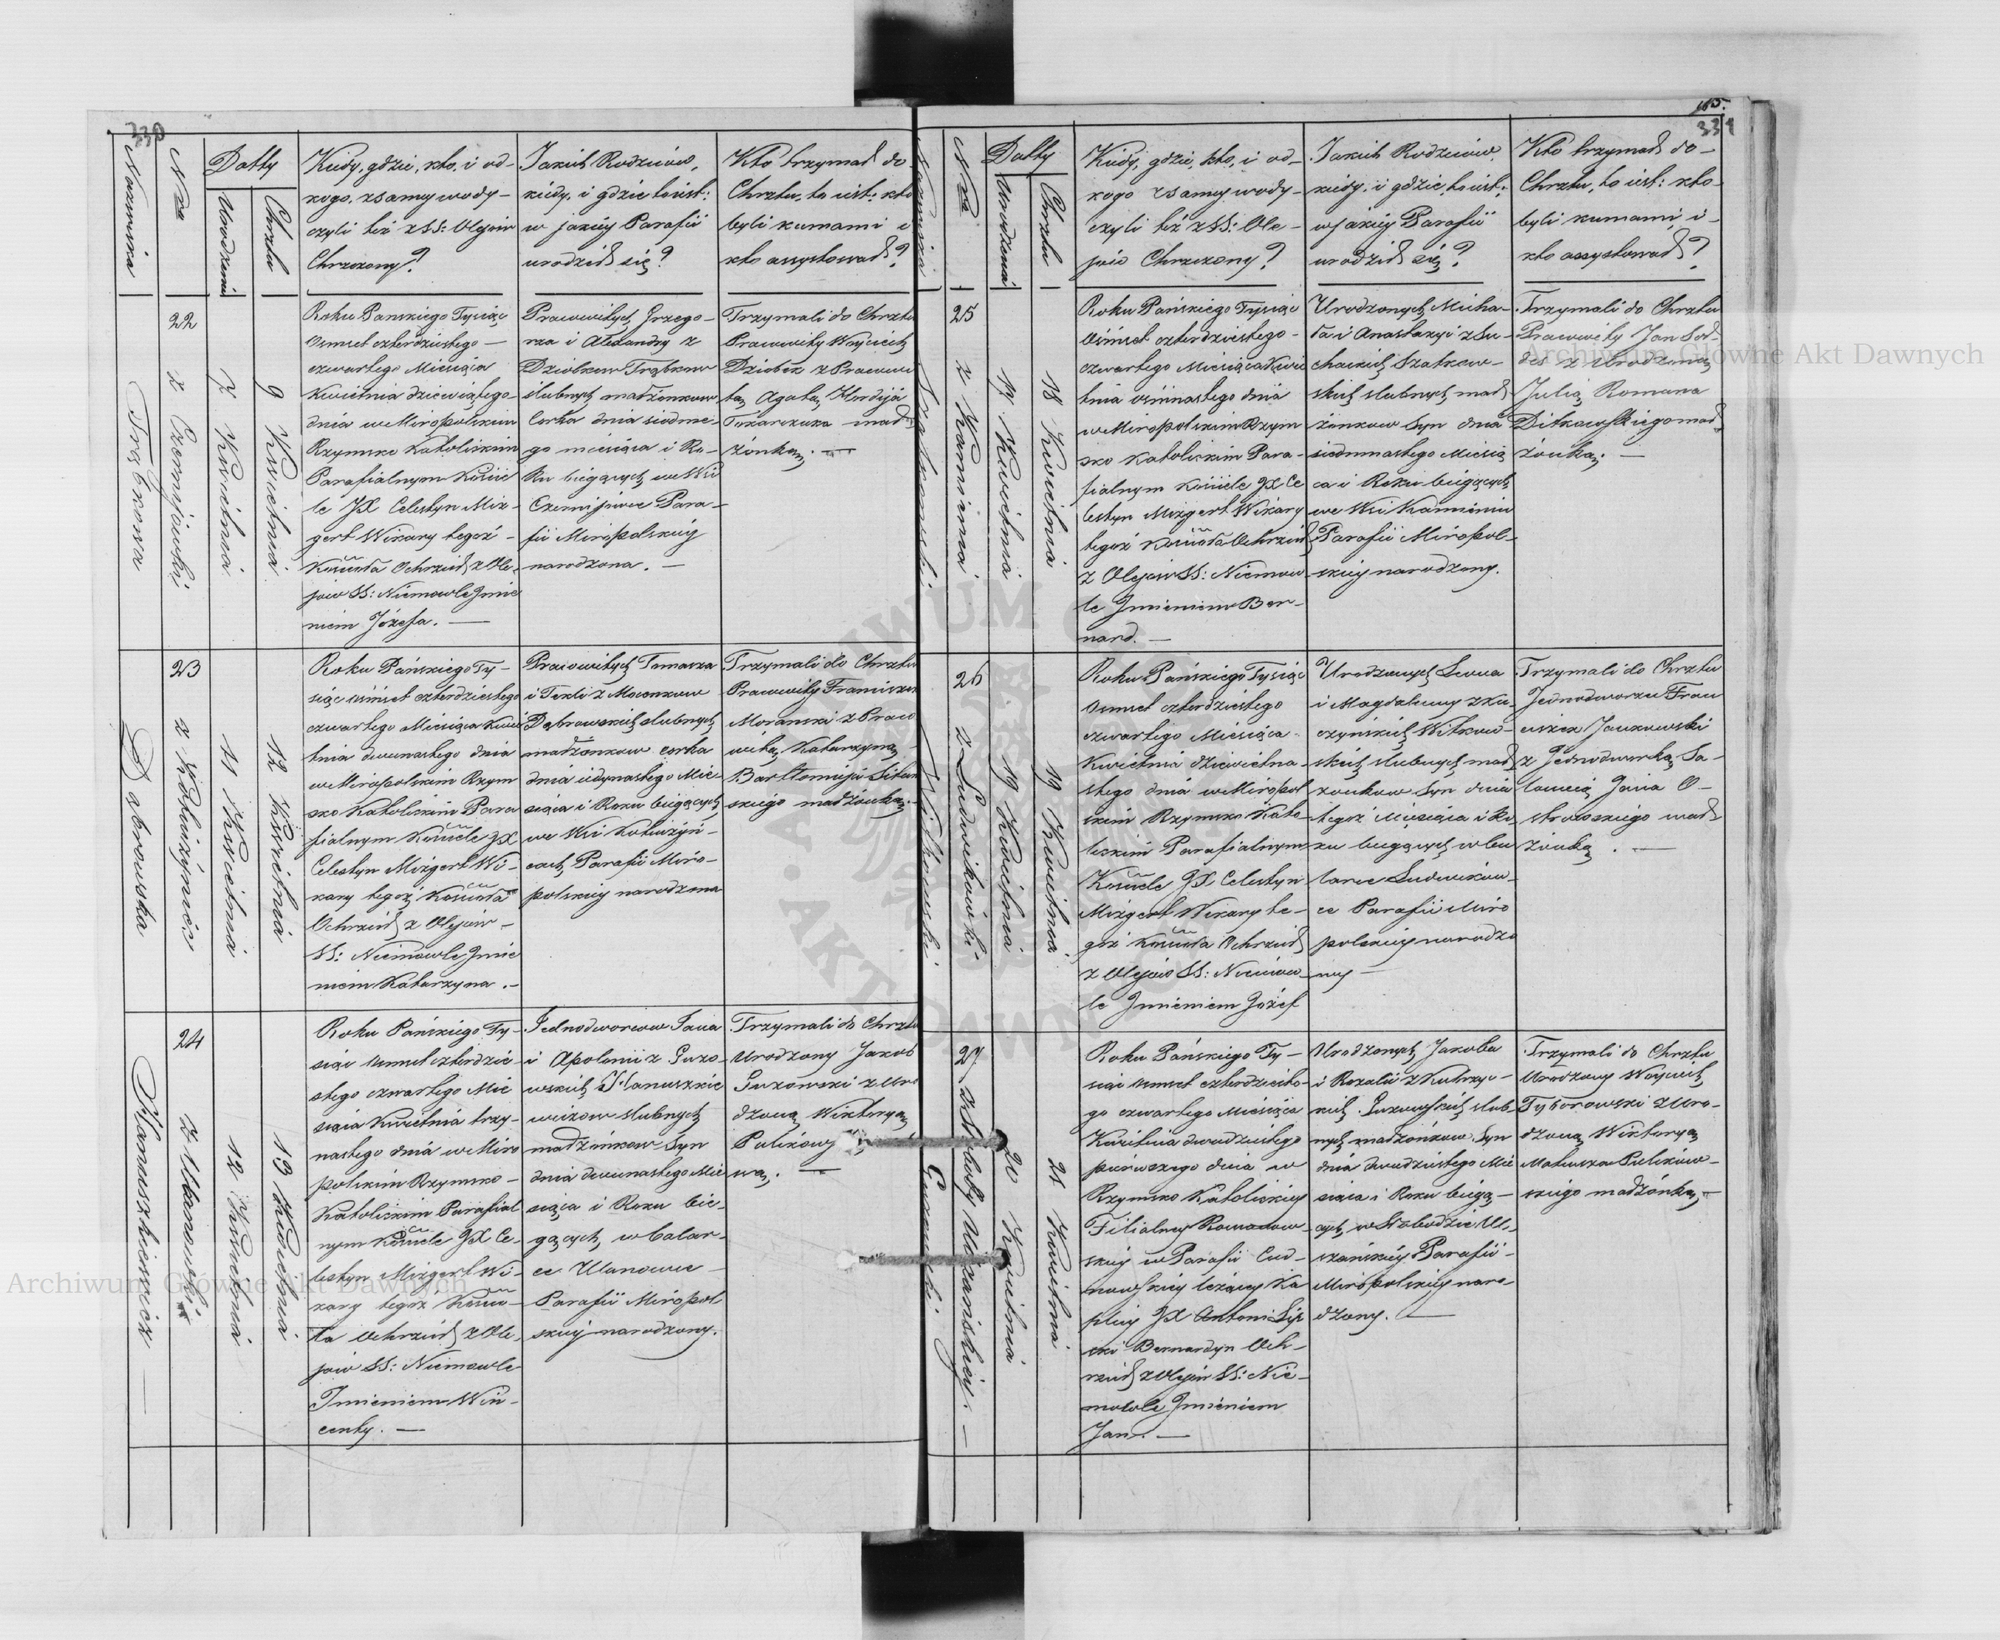 330
Nazwiska
Nra
Datty
Urodzenia
Chrztu
Kiedy, gdzie, kto, i od-
kogo, z samey wody-
czyli też z SS: Olejów
Chrzczony?
Jakich Rodziców,
kiedy, i gdzie to iest:
w jakiey Parafii
urodził się?
Kto trzymał do
Chrztu, to iest: kto
byli kumami i
kto assystował?
Trąbkowa
22
z Czernijówki
7 Kwietnia
9 Kwietnia
Roku Panskiego Tysiąc
Osmset czterdziestego —
czwartego Miesiąca
Kwietnia dziewiątego-
dnia w Miropolskim
Rzymsko Katolickim
Parafialnym Koście
le JX Celestyn Miz-
gert Wikary tegoż -
Kościoła Ochrzcił z Ole-
jów SS: Niemowle Jmie
niem Józefa. —
Pracowitych Grzego-
rza i Alexandry z
Dziobków Trąbków
slubnych małżonkow
Corka dnia siodme-
go miesiąca i Ro-
ku bieżących we Wsi
Czernijówce Para-
fii Miropolskiey
narodzona. —
Trzymali do Chrztu
Pracowity Woyciech
Dziobek z Pracowi
tą Agatą Hordija
Tokarczuka mał-
żonką. —
Dąbrowska
23
z Kołodzżyniec
11 Kwietnia
12 Kwietnia
Roku Pańskiego Ty-
siąc ośmset czterdziestego
czwartego Miesiąca Kwie
tnia dwunastego dnia
w Miropolskim Rzym
sko Katolickim Para
fialnym Kościele JX
Celestyn Mizgert Wi-
kary tegoż Kościoła
Ochrzcił z Olejów —
SS: Niemowle Jmie
niem Katarzyna. —
Pracowitych Tomasza
i Tekli z
Dąbrowskich slubnych
małżonkow corka
dnia iedynastego Mie
siąca i Roku bieżących
we Wsi
cach Parafii Miro-
polskiey narodzona
Trzymali do Chrztu
Pracowity Franciszek
Moranski z Praco
witą Katarzyną
Bartłomieja
skiego małżonką. —
Hanuszkiewicz —
24
z Ulanówki
12 Kwietnia
13 Kwietnia
Roku Pańskiego Ty-
siąc osmset czterdzie-
stego czwartego Mie
siąca Kwietnia trzy-
nastego dnia w Miro
polskim Rzymsko-
Katolickim Parafial
nym Kościele JX Ce-
lestyn Mizgert Wi-
kary tegoż Koscio-
ła Ochrzcił z Ole-
jów SS: Niemowle
Imieniem Win-
centy. —
Jednodworcow Jana
i Apolonii z Guzo-
wskich Hanuszkie
wiczow slubnych
małżonkow Syn
dnia dwunastego Mie
siąca i Roku bie-
żących w
ce Ulanowce —
Parafii Miropol
skiey narodzony.
Trzymali do Chrztu
Urodzony Jakob
Guzowski z Uro
dzoną Wiktoryą
wą. —
165.
331
Nazwiska
Nra
Datty
Urodzenia
Chrztu
Kiedy, gdzie, kto, i od-
kogo z samey wody-
czyli też z SS: Ole-
jów Chrzczony?
Jakich Rodziców,
kiedy, i gdzie, to iest:
w jakiey Parafii
urodził się?
Kto trzymał do-
Chrztu, to iest: kto-
byli kumami, i-
kto assystował?
Szatkowski
25
z Kamienia
17 Kwietnia
18 Kwietnia
Roku Pańskiego Tysiąc
Ośmset czterdziestego-
czwartego Miesiąca Kwie
tnia ośmnastego dnia
w Miropolskim Rzym
sko Katolickim Para-
fialnym Kościele JX Ce
lestyn Mizgert Wikary
tegoż Kościoła Ochrzcił
z Olejów SS: Niemow-
le Jmieniem Ber-
nard. —
Urodzonych Micha-
ła i Anastazyi z Su-
chockich Szatkow-
skich slubnych mał-
żonkow Syn dnia
siedmnastego Miesią
ca i Roku bieżących
we Wsi Kamieniu
Parafii Miropol-
skiey narodzony.
Trzymali do Chrztu
Pracowity Jan Soł-
z Urodzoną
Julią Romana
Ditkowskiego mał-
żonką. —
Witkowski
26
z Ludwikówki
19 Kwietnia
19 Kwietnia
Roku Pańskiego Tysiąc
Osmset czterdziestego
czwartego Miesiąca -
Kwietnia dziewietna-
stego dnia w Miropol
skim Rzymsko Kato-
lickim Parafialnym
Kościele JX Celestyn
Mizgert Wikary te-
goż Kościoła Ochrzcił
z Olejów SS: Niemow-
le Jmieniem Jozéf
Urodzonych
i Magdaleny z Ku-
czyńskich Witkow-
skich slubnych mał
żonkow Syn dnia
tegoż Miesiąca i Ro-
ku bieżących w
Ludwikow-
ce Parafii Miro
polskiey narodzo
ny —
Trzymali do Chrztu
Jednodworzec Fran
ciszek Jankowski
z Jednodworką Sa-
lomeią Jana O-
strowskiego mał-
żonką. —
Guzowski
27
z Słobody Ulszańskiej. —
20 Kwietnia
21 Kwietnia
Roku Pańskiego Ty-
siąc osmset czterdziesto-
go czwartego Miesiąca
Kwietnia dwudziestego
pierwszego dnia w
Rzymsko Katolickiey
Filialney Romanow-
skiey w Parafii Cud-
nowskiey leżącey Ka
plicy JX Antoni
Bernardyn Och-
rzcił z Olejów SS: Nie-
mowle Jmieniem
Jan. —
Urodzonych Jakoba
i Rozalii z Kuhrzyc-
kich Guzowskich slub-
nych małżonkow Syn
dnia dwudziestego Mie
siąca i Roku bieżą-
cych w Słobodzie Ul-
szańskiey Parafii-
Miropolskiey naro
dzony. —
Trzymali do Chrztu
Urodzony Woyciech
Tyborowski z Uro-
dzoną Wiktoryą
Mateusza
skiego małżonką. —
Archiwum Główne Akt Dawnych
Archiwum Główne Akt Dawnych